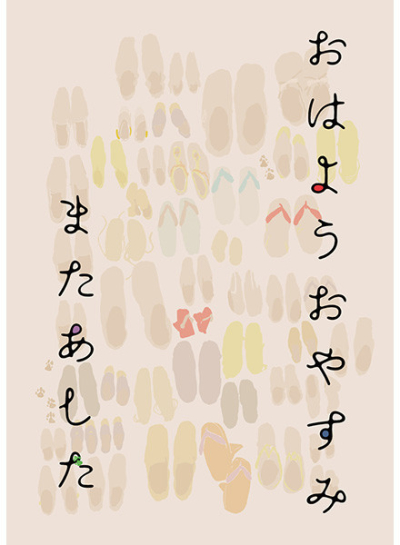 おはようおやすみ
またあした